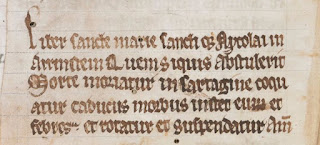 Liber sancte marie sancti q3 Nycolai in
Arrinstein Quem siquis abstulerit
Morte moriatur in sartagine coqu
atur caducus morbus instet eum et
febres. et rotatur et suspendatur Am̅